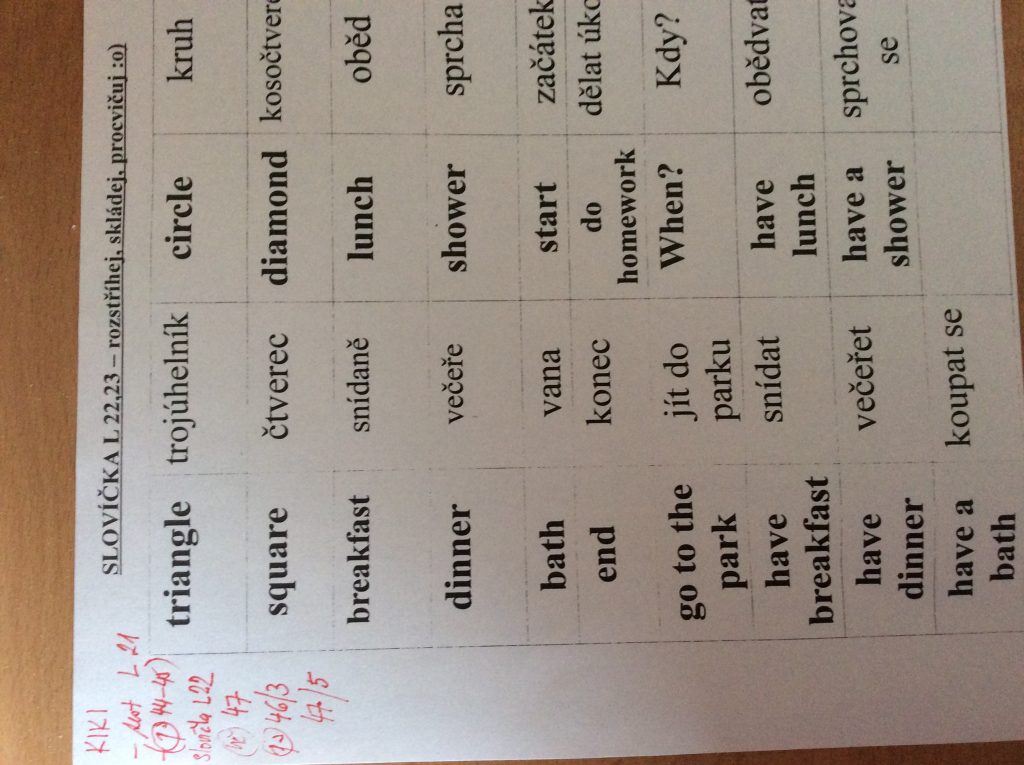 SLOVÍČKA L 22,23 – rozstříhej, skládej, procvičuj :o)
triangle trojúhelník circle kruh
square čtverec diamond kosočtvere
breakfast snídaně lunch oběd
dinner večeře shower sprcha
bath vana start začátek
end konec do homework dělat úko
go to the park jít do parku When? Kdy?
have breakfast snídat have lunch obědvat
have dinner večeřet have a shower sprchova se
have a bath koupat se
KIKI
L 21
44-45)
slovíčka L22
47
46/3
47/5